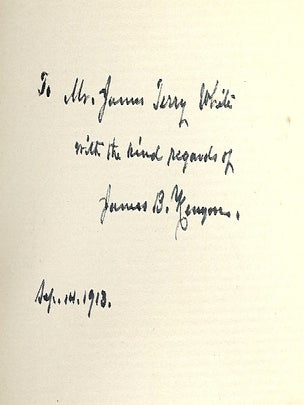 To Mr. James Terry White
with the kind regards of
James B. Kenyon.
Sep. 14. 1913.